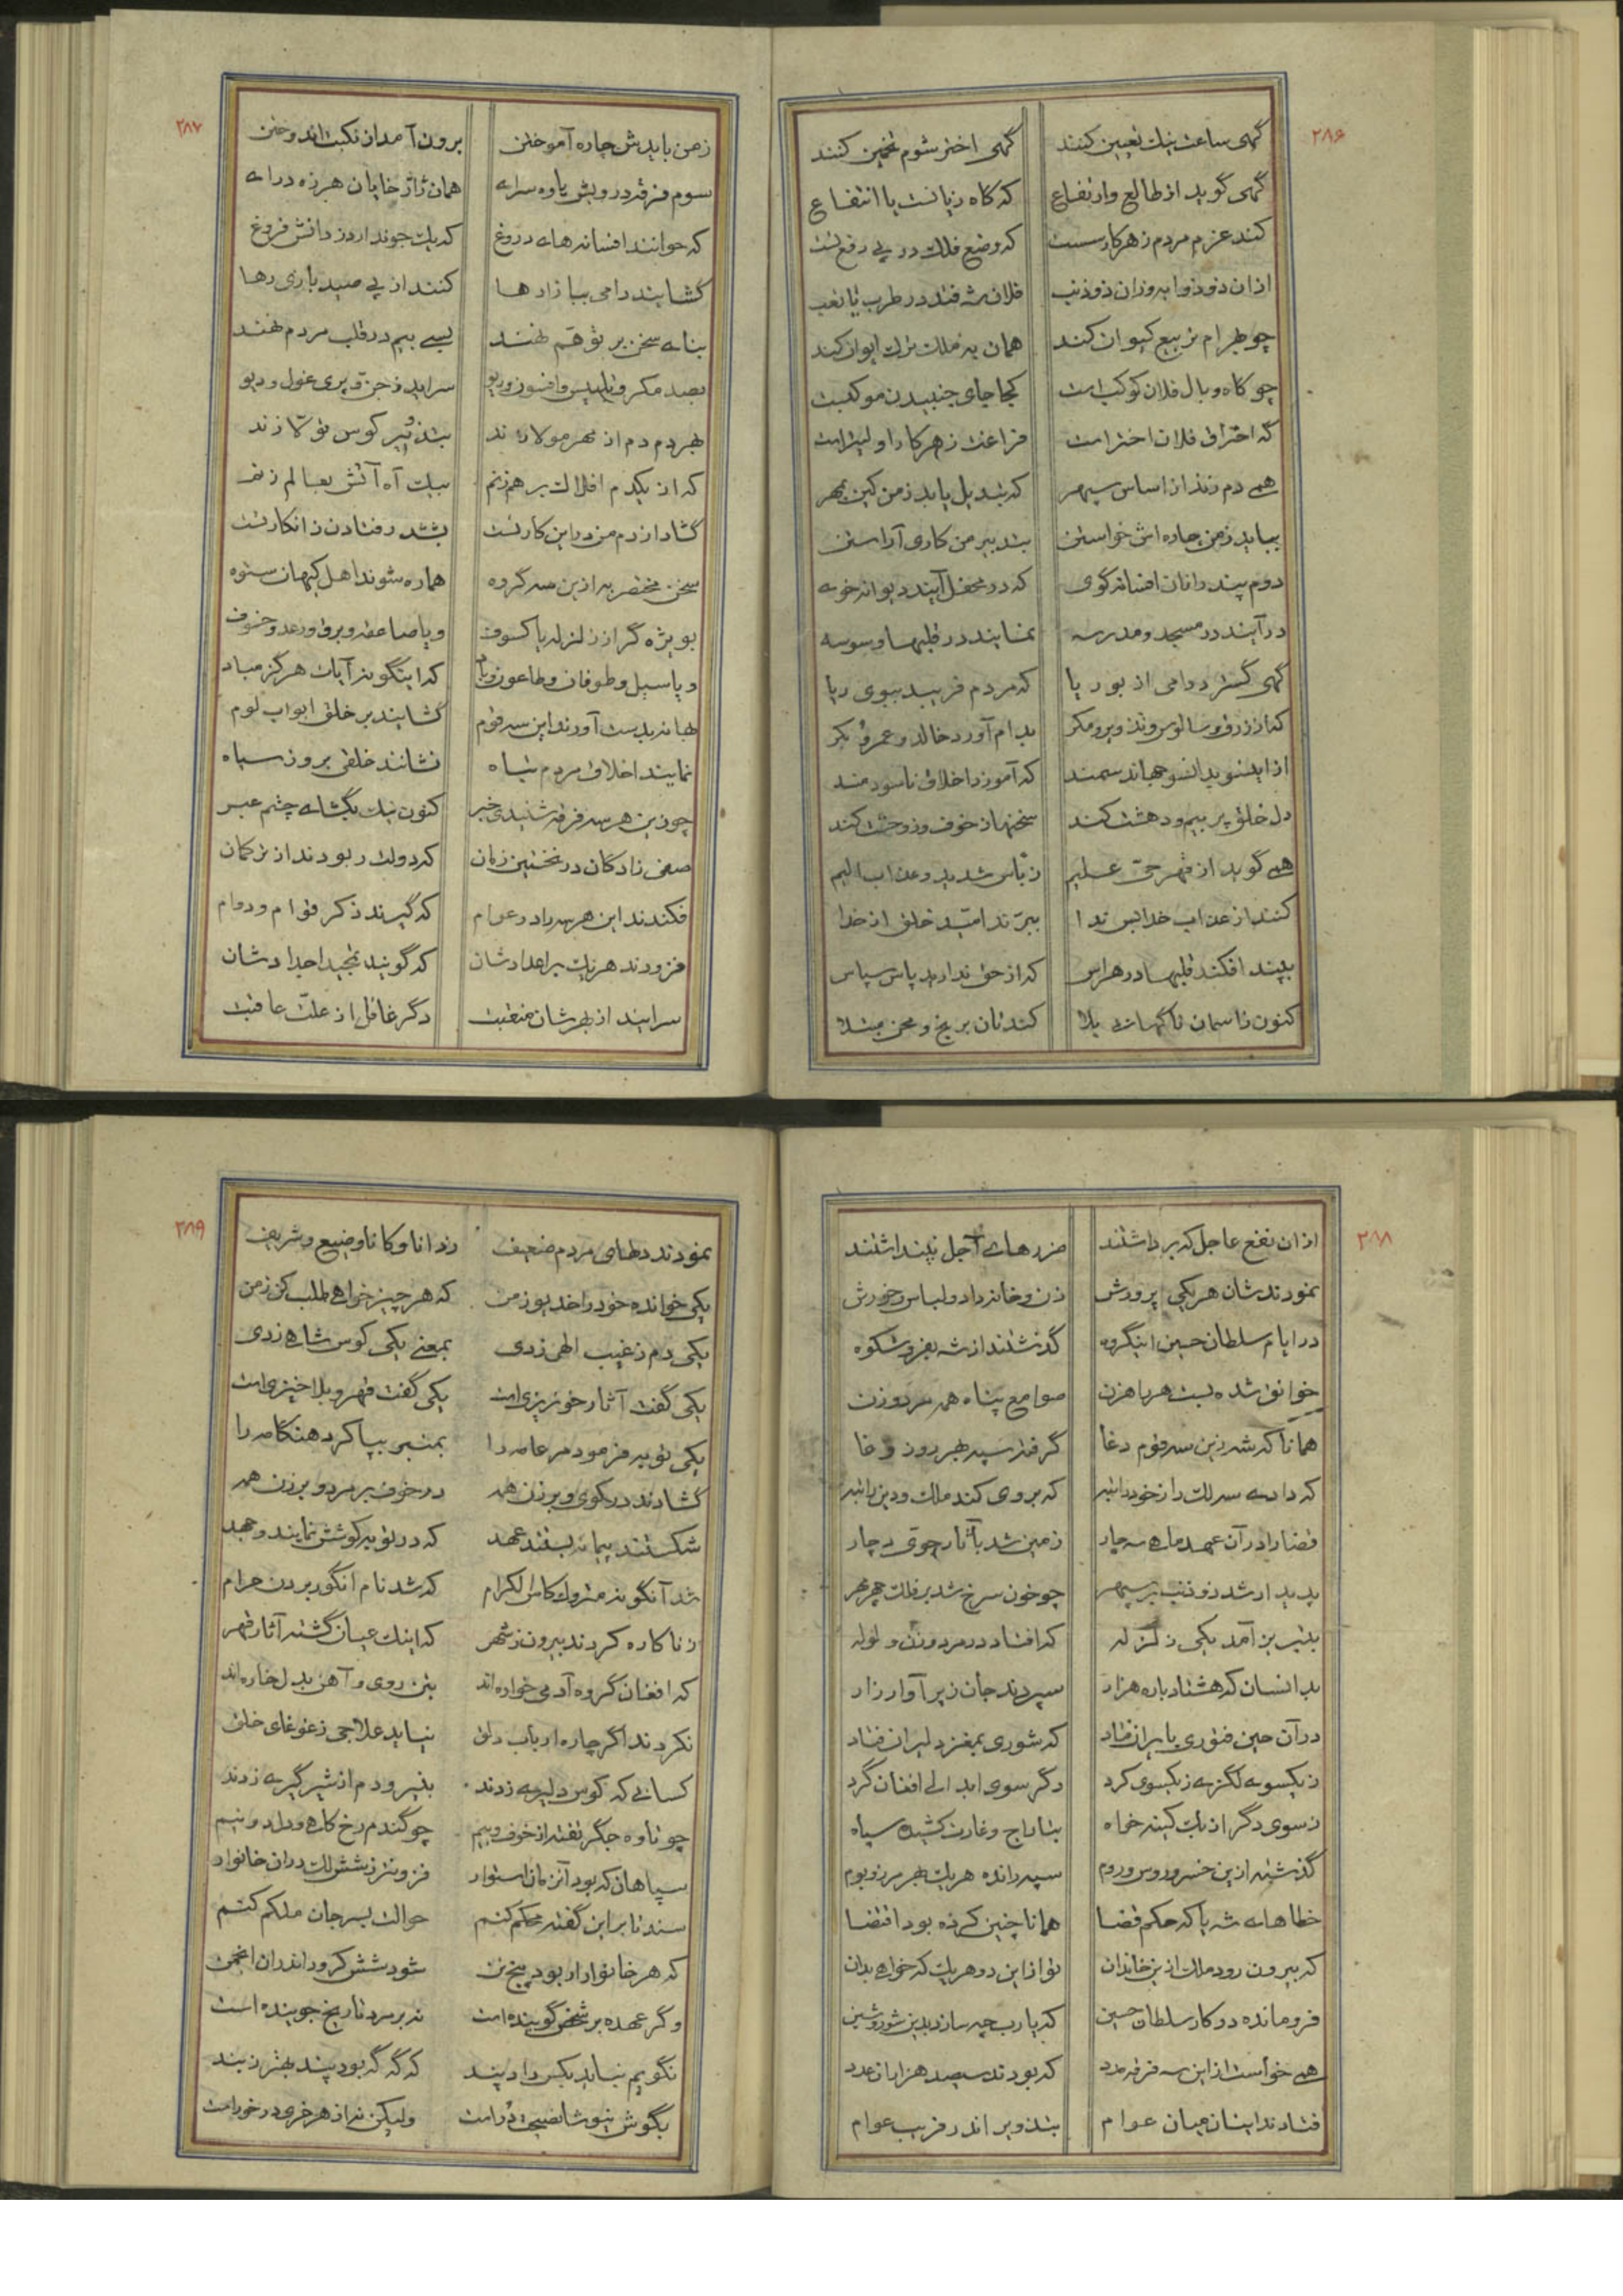 ۲۸۶
گهی ساعت نیک تعیین کنند گهی اختر شوم تخمین کنند
گهی گوید از طالع وارتفاع که گاه زیانست یا انتفاع
کند عزم مردم زهر کار سست که وضع فلک در پی رفع تست
از ان ذوذوابه وزان ذوذنب فلان شه فتد در طرب یا تعب
چو بهرام تربیع کیوان کند همان به ملک ترک ایوان کند
چو گاه وبال فلان کوکب است کجا جای جنبیدن موکبست
گه احتراق فلان اختر است فراغت زهر کار اولیتر است
همی دم زند از اساس سپهر که تبدیل یابد زمن کین بمهر
بباید زمن چاره اش خواستن بتدبیر من کاری آراستن
دوم پند رانان افسانه گوی که در محفل آیند دیوانه خوی
در آیند در مسجد و مدرسه نمایند در قلبها وسوسه
گهی گسترد دامی از بوریا که مردم فریبد ببوی ریا
که از زرق وسالوس وتزویر ومکر بدام آورد خالد و عمرو بکر
از اینسو بدانسو جهاند سمند که آموزد اخلاق ناسودمند
دل خلق پر بیم ودهشت کند سخنها ز خوف وز وحشت کند
همی گوید از قهر حق علیم ز بأس شدید وعذاب الیم
کنند از عذاب خدا بس ندا ببرند امید خلق از خدا
بپند افکند قلبها در هراس که از حق ندارید پاس سپاس
کنون زاسمان ناگهانی بلا کندتان برنج و محن مبتلا
۲۸۷
زمن بایدش چاره آموختن برون آمد از نکبت اندوختن
سوم فرقه درویش یاوه سرای همان ژاژ خایان هرزه درای
که خوانند افسانه های دروغ که یک جو ندارد ز دانش فروغ
گشایند دامی ببازارها کنند از پی صید بازی رها
بنای سخن بر توهم نهند بسی بیم در قلب مردم نهند
بصد مکر وتلبیس وافسون وریو سراید ز جن و پری غول و دیو
بهر دم دم از مهر مولا زند بتذویر کوس تولا زند
که از یکدم افلاک بر هم زنم بیک آه آتش بعالم زنم
گشاد از دم من درین کار تست بتبّد رفتادن ز انکار تست
سخن مختصر به ازین سه گروه هماره شوند اهل کیهان ستوه
بویژه گر از زلزله یا کسوف ویا صاعقه وبرق ورعد وخسوف
ویا سیل وطوفان وطاعون وبا که اینگونه آیات هرگز مباد
بهانه بدست آورند این سه قوم گشایند بر خلق ابواب لوم
نمایند اخلاق مردم تباه نشانند خلقی بروز سیاه
چو زین هر سه فرقه شنیدی خبر کنون نیک بگشای چشم عبر
صفی زادگان در نخستین زمان که دولت ربودند از ترکمان
فکندند این هر سه را در عوام که گیرند ذکر قوام و دوام
فزودند هر یک بر اعدادشان که گویند تمجید اجدادشان
سرایند از بهرشان منقبت دگر غافل از علت عاقبت
۲۸۸
از ان نفع عاجل که برداشتند ضررهای آجل نپنداشتند
نمودندشان هر یکی پرورش زن و خانه داد ولباس وخورش
در ایام سلطان حسین اینگروه گذشتند از شه بفر وشکوه
خوانق شده بست هر راهزن صوامع پناه همه مرد وزن
همانا که شه زین سه قوم دغا گرفته سپه بهر روز وغا
که دادی سر لک را ز خود رانبه که بروی کند ملک ودین
قضا را در آن عهد ماه سه چار زمین شد بآثار جوی دچار
پدیدار شد ذو ذنب بر سپهر چو خون سرخ شد بر فلک چهر مهر
بتبریز آمد یکی زلزله که افتاد در مرد وزن ولوله
بدانسان که هشتاد باره هزار سپردند جان زیر آوار زار
در آن حین فتوری بایران فتاد که شوری بمغز دلیران فتاد
ز یکسوی لگزی ز یکسوی کرد دگر سوی ابدالی افغان گرد
ز سوی دگر ازبک کینه خواه بتاراج وغارت کشیده سپاه
گذشته ازین خسرو روس وروم سپه رانده هر یک بهر مرز وبوم
خطاهای شه یا که حکم قضا همانا چنین کرده بود اقتضا
که بیرون رود ملک ازین خاندان تو از این دو هر یک که خواهی بدان
فرومانده در کار سلطان حسین که یا رب چه سازد بدین شور وشین
همی خواست از این سه فرقه مدد که بودند سیصد هزار از عدد
فتادند اینان میان عوام بتذویر اندر فریب عوام
۲۸۹
نمودند دطای مردم ضعیف ز دانا وکانا وضیع وشریف
یکی خوانده خود را خدیو زمن که هر چیز خواهی طلب کن زمن
یکی دم ز غیب الهی زدی بمعنی یکی کوس شاهی زدی
یکی گفت آثار خونریزی است یکی گفت قهر و بلا خیزی است
یکی توبه فرمود مر عامه را بمنبر بپا کرد هنگامه را
گشادند در کوی وبرزن همه در خوف بر مرد و بر زن همه
شکستند پیمانه بستند عهد که در توبه کوشش نمایند وجهد
شد آنگونه متروک کاس الکرام که شد نام انگور بردن حرام
زناکاره کردند بیرون ز شهر که اینک عیان گشته آثار قهر
که افغان گروه آدمی خواره اند بتن روی و آهن بدل خاره اند
نکردند اگر چاره ارباب دلق نیاید علاجی ز غوغای خلق
کسانی که کوس دلیری زدند بنیرو دم از شیر گیری زدند
چو تاوه جگر تفته از خوف وبیم چو گندم رخ کاهی ودل دو نیم
سپاهان که بود آنزمان استوار فزونتر ز شش لک در ان خانوار
سند تا بر این گفته محکم کنم حوالت بسرجان ملکم کنم
که هر خانوار ار بود پنج تن شود شش کرور اندران انجمن
وگر عهده بر شخص گوینده است نه بر مرد تاریخ جوینده است
نگویم نباید بکس داد پند که گه گه بود پند بهتر ز بند
بگوش نیوشا نصیحت دُر است ولیکن نه از هر خری در خور است